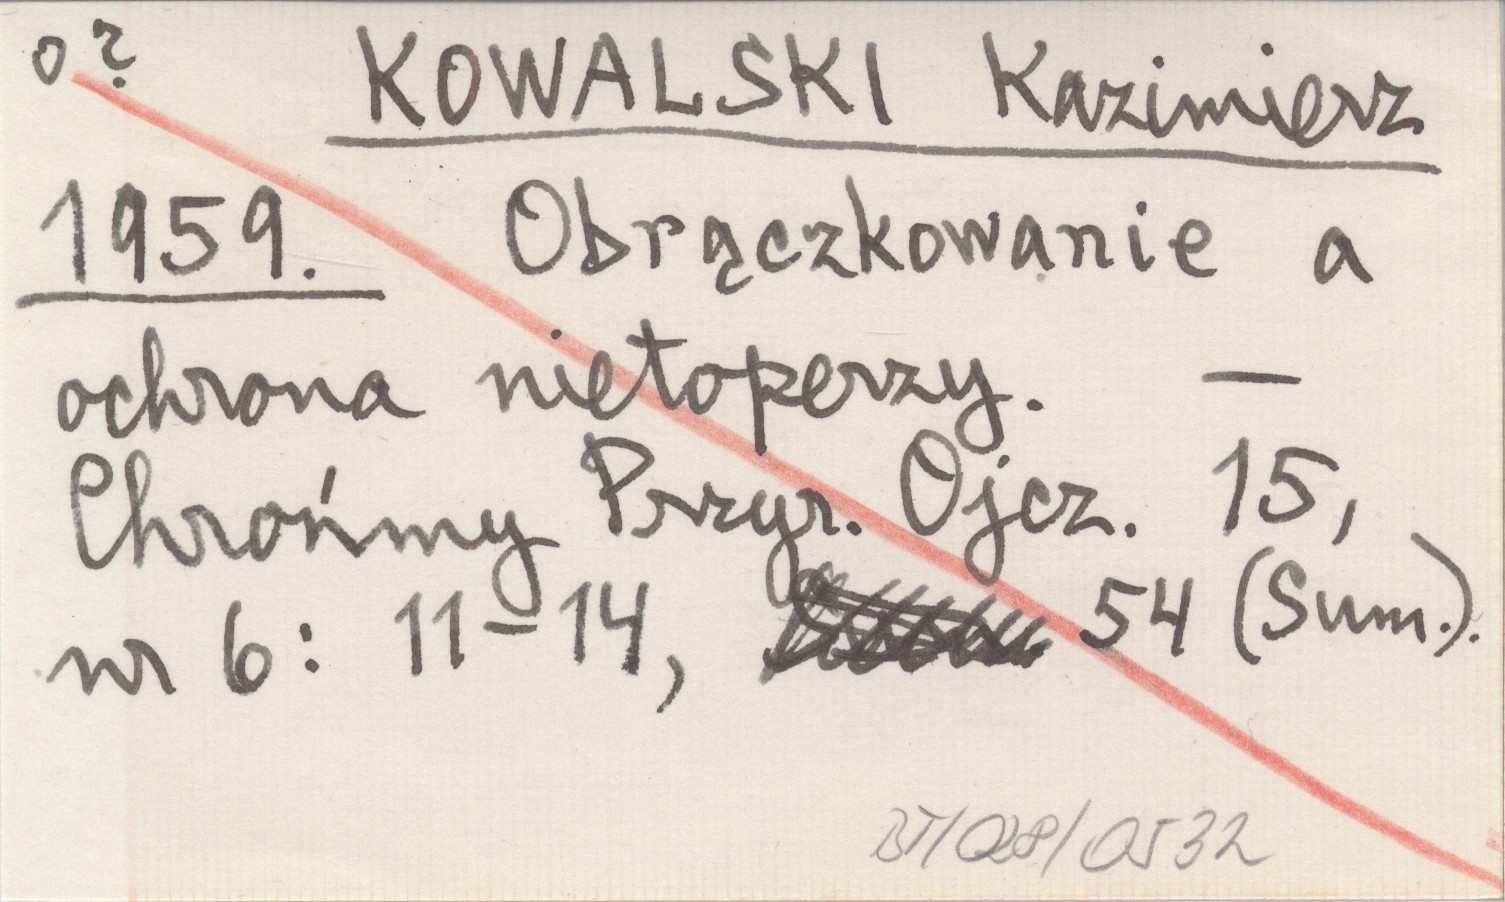 o ?
KOWALSKI Kazimierz
1959. Obrączkowanie a
ochrona nietoperzy. —
Chrońmy Przyr. Ojcz. 15,
nr 6: 11–14, 54 (Sum.).
BT/028/0532